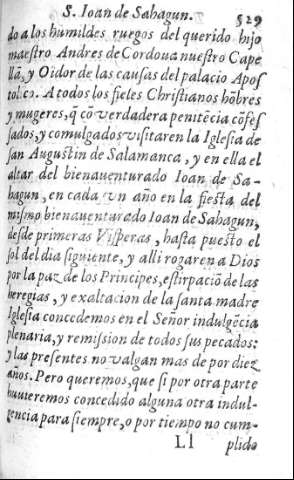 S. Ioan de Sahagun. 529
do a los humildes ruegos del querido hijo
maestro Andres de Cordoua nuestro Cape
llã, y Oidor de las causas del palacio Apos
tolico. A todos los fieles Christianos hõbres
y mugeres, q̃ cõ verdadera penitẽcia cõfes
sados, y comulgados visitaren la Iglesia de
san Augustin de Salamanca, y en ella el
altar del bienauenturado Ioan de Sa-
hagun, en cada vn año en la fiesta del
mismo bienauenturado Ioan de Sahagun,
desde primeras Visperas, hasta puesto el
sol del dia siguiente, y alli rogaren a Dios
por la paz de los Principes, estirpaciõ de las
heregias, y exaltacion de la santa madre
Iglesia concedemos en el Señor indulgẽcia
plenaria, y remission de todos sus pecados:
y las presentes no valgan mas de por diez
años. Pero queremos, que si por otra parte
huuieremos concedido alguna otra indul-
gencia para siempre, o por tiempo no cum-
Ll plido